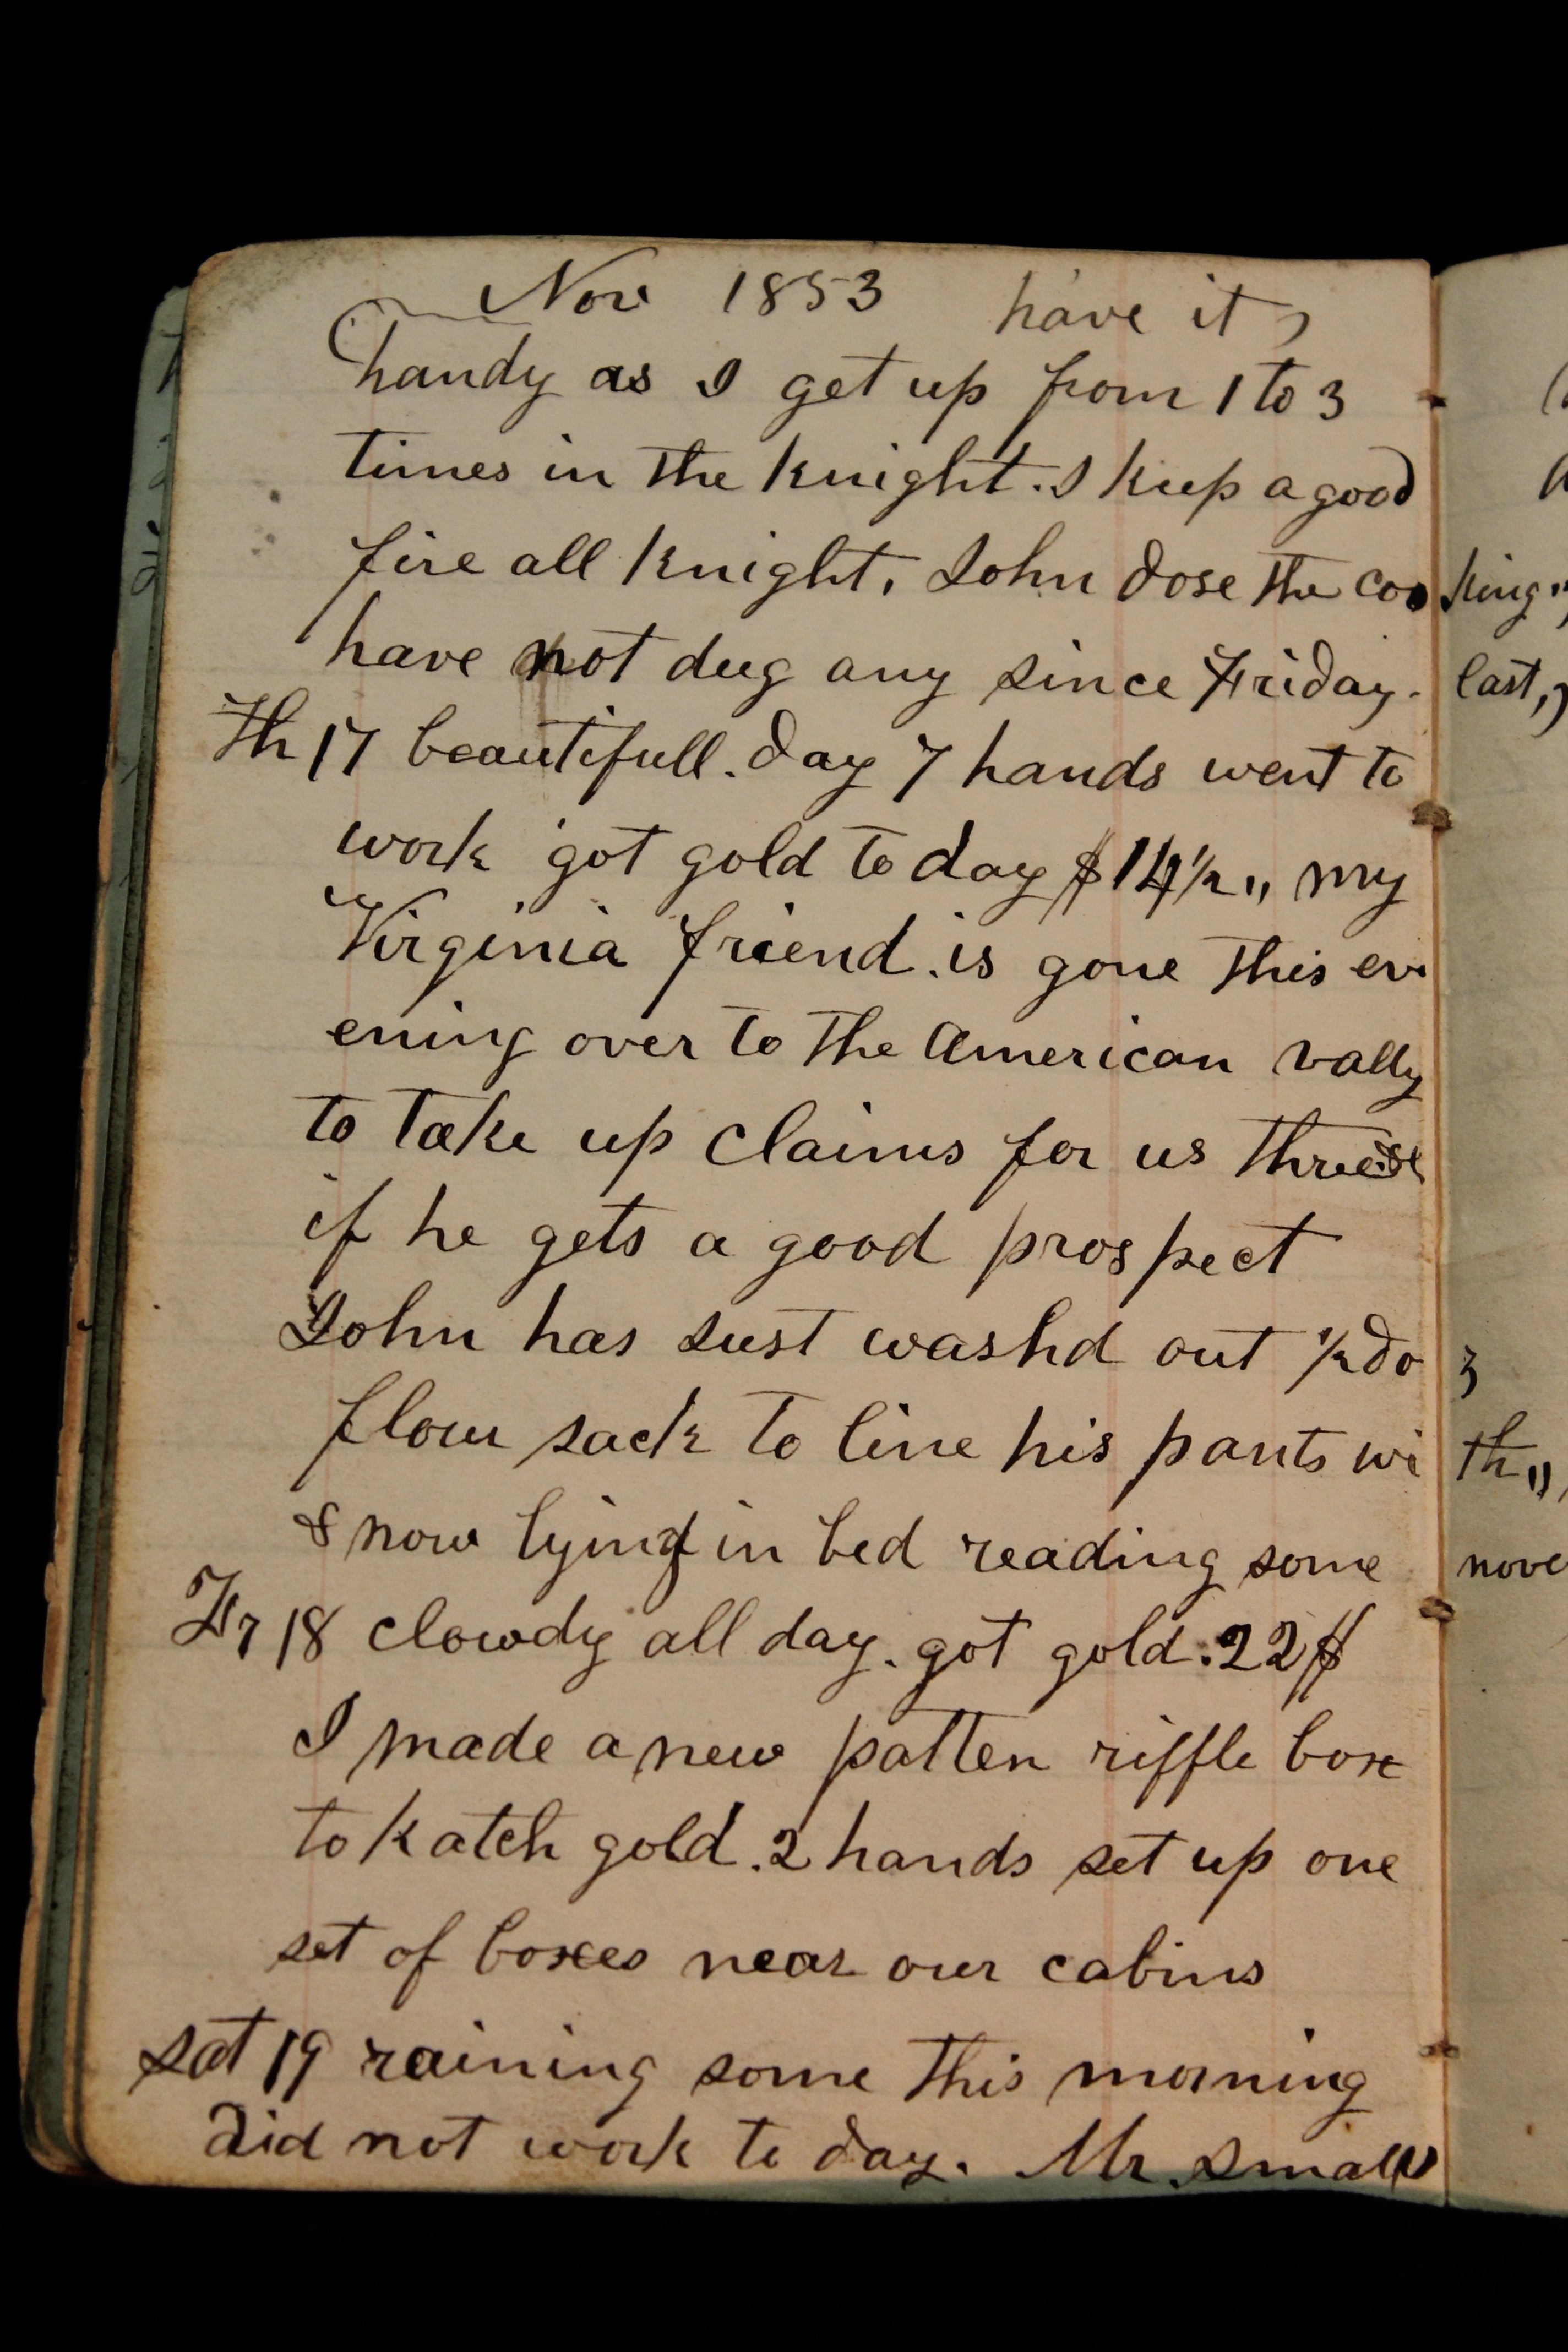 Nov 1853 have it,
handy as I get up from 1 to 3
times in the knight. I keep a good
fire all knight. John dose the cooking"
have not dug any since Friday. last,,
Th 17 beautifull. day 7 hands went to
work got gold to day $14 1/2 ,, my
Virginia friend. is gone this ev
ening over to the American vally
to take up claims for us three
if he gets a good prospect
John has Just washd out 1/2 do 3
flour sack to line his pants with,,
& now lying in bed reading some
Fr 18 clowdy all day. got gold. 22$
I made a new patten riffle box
to katch gold. 2 hands set up one
set of boxes near our cabins
sat 19 raining some this morning
did not work to day. Mr. Small